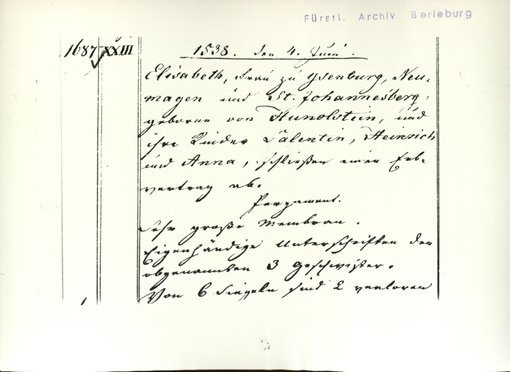 Fürstl. Archiv Berleburg
1687 XXIII
1538. den 4. Juni.
Elisabeth, Frau zu Ysenburg, Neu-
magen und St. Johannesberg,
geborne von Hunolstein, und
ihre Kinder Salentin, Heinrich
und Anna, schließen einen Erb-
vertrag ab.
Pergament.
Sehr große Membran.
Eigenhändige Unterschriften der
obgenannten 3 Geschwister.
Von 6 Siegeln sind 2 verloren